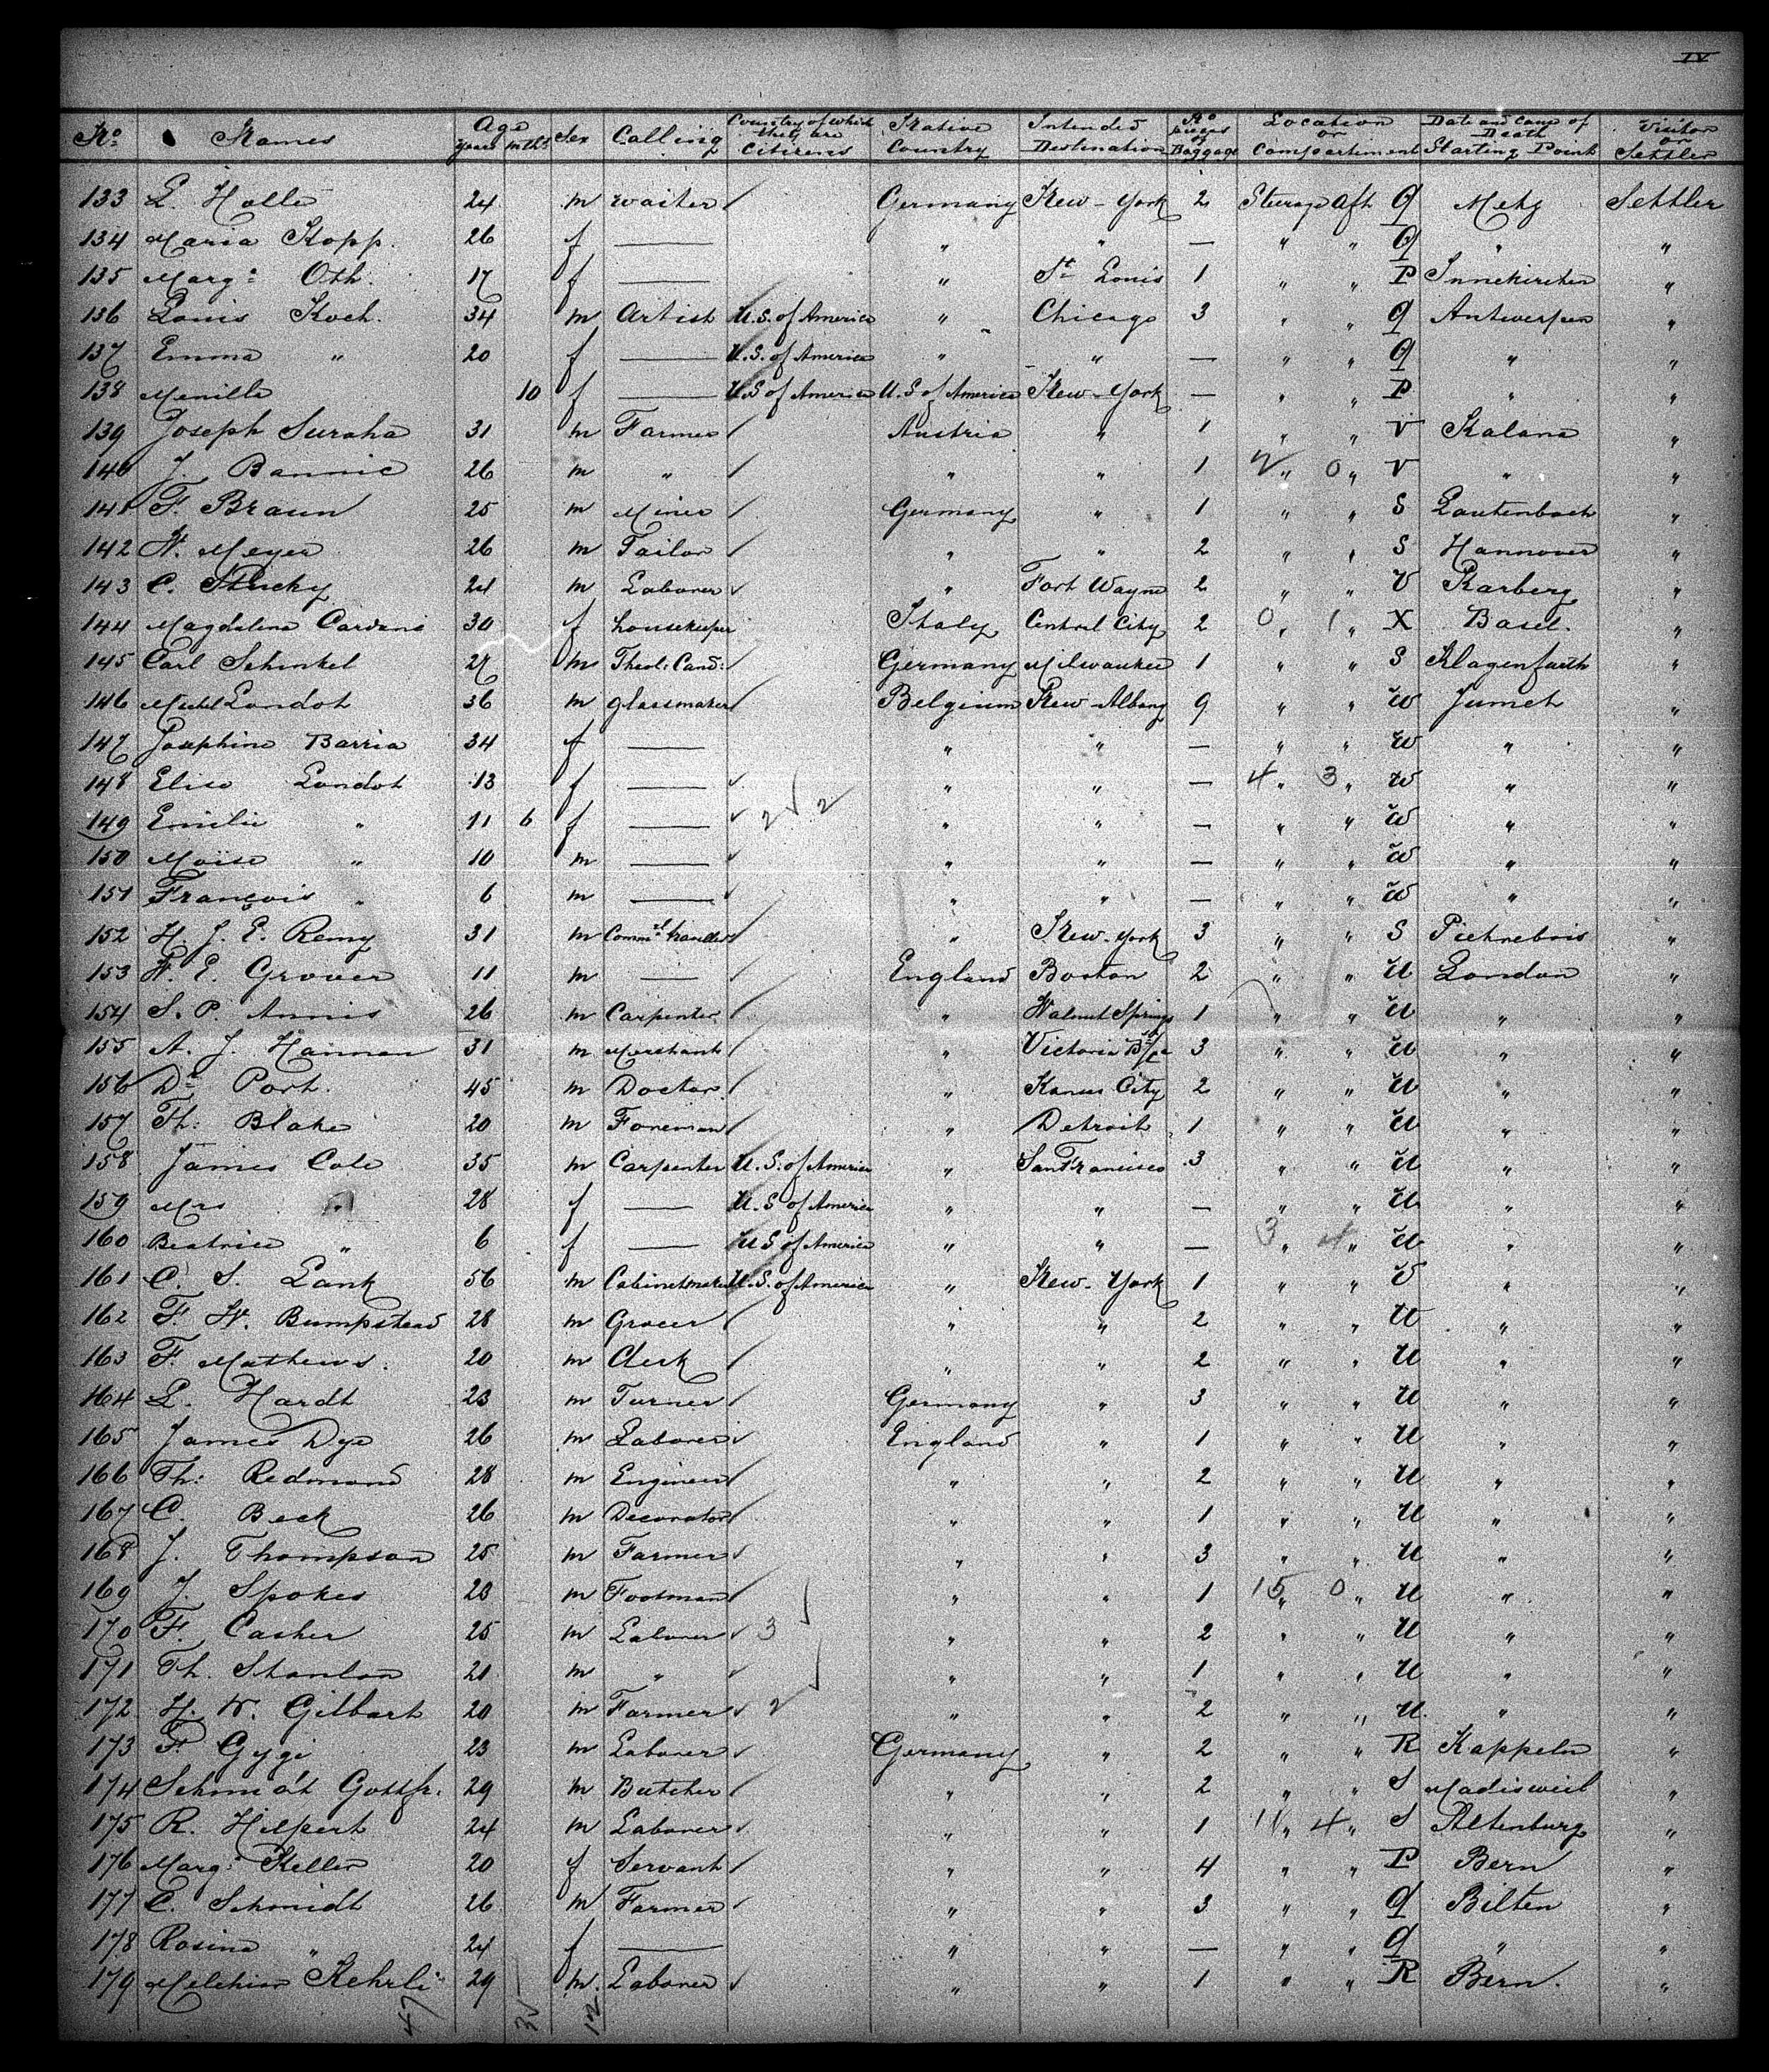 IV
No Names Age years mths Sex Calling Country of which they are Citizens Native Country Intended Destination No pieces of Baggage Location or Compartiment Date and Cause of Death Starting Point Visitor or Settler
133 L. Halle 24 m waiter / Germany New-York 2 Steerage Aft Q Metz Settler
134 Maria Kopp. 26 f — " " — " " Q " "
135 Marg: Oth. 17 f — " St Louis 1 " " P Innekirchen "
136 Louis Koch. 34 m Artist U.S. of America " Chicago 3 " " Q Antwerpen "
137 Emma " 20 f — U.S. of America " " — " " Q " "
138 Menilla 10 f — U.S of America U.S of America New-York — " " P " "
139 Joseph Suraha 31 m Farmer / Austria " 1 " " V Kalana "
140 J. Bannic 26 m " / " " 1 " 0 " V " "
141 F. Braun 25 m Miner / Germany " 1 " " S Lautenbach "
142 W. Meyer 26 m Tailor / " " 2 " " S Hannover "
143 C. Stucky 24 m Laborer ✓ " Fort Wayne 2 " " V "
144 Magdalina Cardani 30 f housekeeper Italy Central City 2 0 " 1 " X Basel. "
145 Carl Schinkel 27 m Theol: Cand: / Germany Milwaukee 1 " " S Klagenfurth "
146 Michl Londot 36 m glassmaker / Belgium New-Albany 9 " " W Jumet "
147 Josephine Barria 34 f — " " — " " W " "
148 Elise Londot 13 f — ✓ " " — 4 " 3 " W " "
149 Emilie " 11 6 f — ✓ 2 ✓ 2 " " — " " W " "
150 Moïse " 10 m — ✓ " " — " " W " "
151 François " 6 m — ✓ " " — " " W " "
152 H. J. E. Remy 31 m Comml traveller / " New-York 3 " " S Pietrebois "
153 W. E. Grover 11 m — / England Boston 2 " " U London "
154 S. P. Annis 26 m Carpenter / " Walnut Springs 1 " " U " "
155 A. J. Hainman 31 m Merchant / " Victoria 3 " " U " "
156 Dr Port. 45 m Doctor / " Kansas City 2 " " U " "
157 Th: Blake 20 m Foreman / " Detroit 1 " " U " "
158 James Cole 35 m Carpenter U.S. of America " San Francisco 3 " " U " "
159 Mrs " 28 f — U.S of America " " — " " U " "
160 Beatrice " 6 f — U S of America " " — 3 " 4 " U " "
161 C. S. Lank 56 m Cabinetmaker U.S. of America " New-York 1 " " U " "
162 F. W. Bumpstead 28 m Grocer / " " 2 " " U " "
163 F. Mathews. 20 m Clerk / " " 2 " " U " "
164 L. Hardt 23 m Turner / Germany " 3 " " U " "
165 James Dye 26 m Laborer ✓ England " 1 " " U " "
166 Th: Redmond 28 m Engineer / " " 2 " " U " "
167 C. Beck 26 m Decorator / " " 1 " " U " "
168 J. Thompson 25 m Farmer ✓ " " 3 " " U " "
169 J. Spokes 23 m Footman / " " 1 15 " 0 " U " "
170 F. Casher 25 m Laborer ✓ 3 " " 2 " " U " "
171 Th. Stanlan 21 m " ✓ " " 1 " " U " "
172 H. W. Gilbart 20 m Farmer ✓ 2 " " 2 " " U " "
173 F. Gygi 23 m Laborer ✓ Germany " 2 " " R Kappeln "
174 Schmo't Gottfr. 29 m Butcher / " " 2 " " S Madisweil "
175 R. Hilpert 24 m Laborer ✓ " " 1 11 " 4 " S Altenburg "
176 Marg: Keller 20 f Servant / " " 4 " " P Bern "
177 C. Schmidt 26 m Farmer ✓ " " 3 " " Q Bilten "
178 Rosina " 24 f — " " — " " Q " "
179 Melchior Kehrli 29 m. Laborer ✓ " " 1 " " R Bern. "
47 35 12